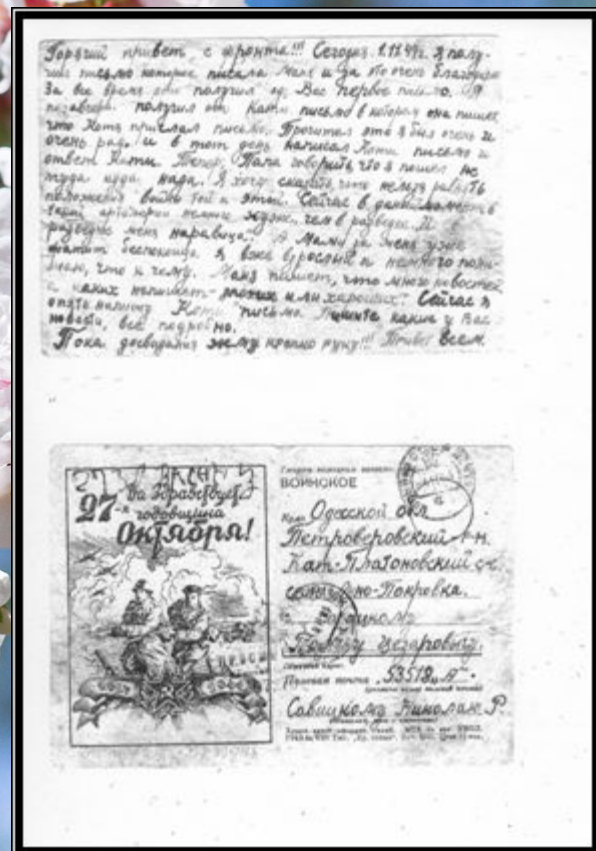 Горячий привет с фронта!!! Сегодня 1.IV 44г. Я полу-
чил письмо которое писала Маня и за это очень благодарю
За все время это получил от Вас первое письмо. Я
позавчера получил от Кати письмо в котором она пишет
что Котя прислал письмо. Прочитал это я был очень и
очень рад. и в тот день написал Коти письмо и
ответ Кати. Папа говорить что я пошел не
туда куда нада. Я хочу сказать, что нельзя
положения войны той и этой. Сейчас в данный момент в
артилерии немного хуже, чем в разведке. И в
разведке мене наравица. А Мами за меня уже
беспокоица. Я вже взрослый и немного пони-
маю, что к чему. Маня пишет, что много новостей
а каких напишет - плохих или хароших? Сейчас я
опять напишу Коти письмо. Пишите какие у Вас
новости, все подробно.
Пока досвидания жму крепко руку!!! Привет всем.
27
-я
Да Здравствует
годовщина
Октября!
1917 1944
ВОИНСКОЕ
Кому Одесской обл
Петроверовский р-н.
Кат-Платоновский с-с.
село -но-Покровка.
Цезаровичу.
Полевая почта 53518 „А".
Савицкому Николаю Р.